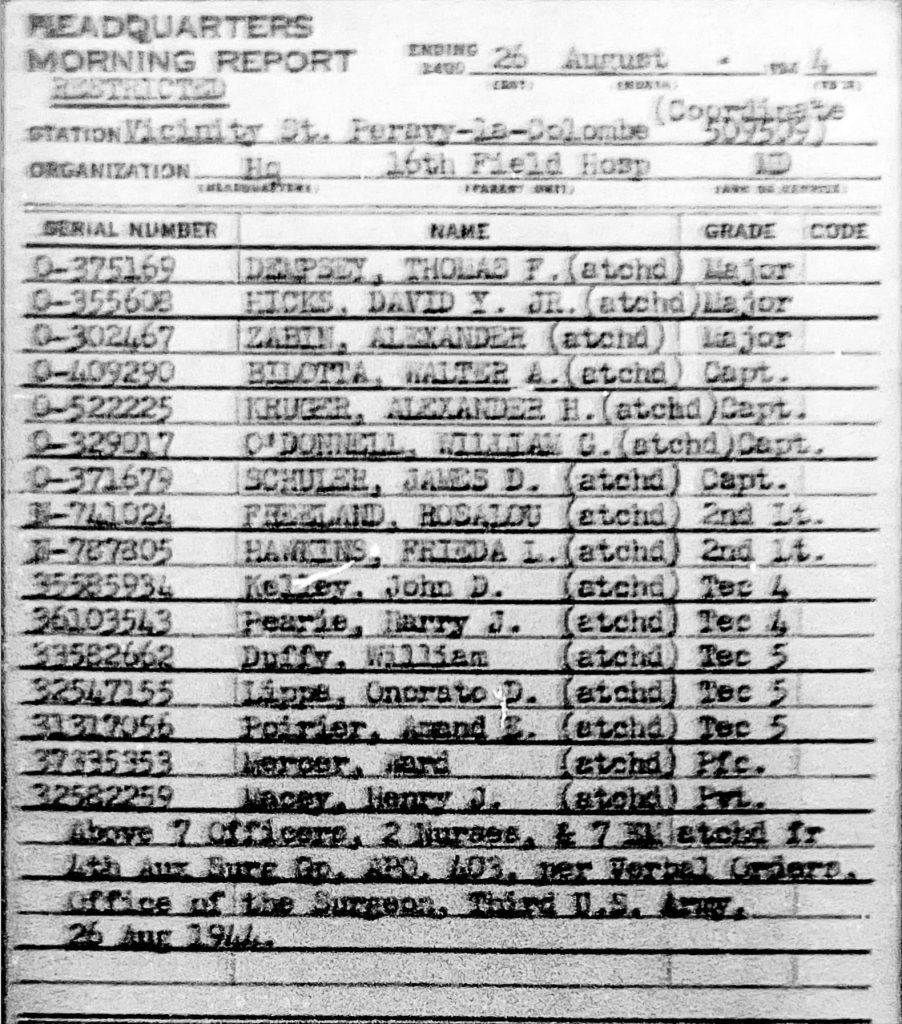 HEADQUARTERS
MORNING REPORT
ENDING 2400 26 August 4
(DAY) (MONTH) (YEAR)
RESTRICTED
(Coordinate
STATION Vicinity St. Peravy-la-Colombe 509509)
ORGANIZATION Hq 16th Field Hosp MD
(HEADQUARTERS) (PARENT UNIT) (ARM OR SERVICE)
SERIAL NUMBER NAME GRADE CODE
O-375169 DEMPSEY, THOMAS F.(atchd) Major
O-355608 HICKS, DAVID Y. JR.(atchd)Major
O-302467 ZABIN, ALEXANDER (atchd) Major
O-409290 BILOTTA, WALTER A.(atchd) Capt.
O-522225 KRUGER, ALEXANDER H.(atchd)Capt.
O-329017 O'DONNELL, WILLIAM G.(atchd)Capt.
O-371679 SCHULER, JAMES D. (atchd) Capt.
N-741024 FREELAND, ROSALOU (atchd) 2nd Lt.
N-787805 HAWKINS, FRIEDA L.(atchd) 2nd Lt.
35585934 John D. (atchd) Tec 4
36103543 Pearie, Harry J. (atchd) Tec 4
33582662 Duffy, William (atchd) Tec 5
32547155 Lippa, Onorato D. (atchd) Tec 5
31317056 Poirier, Amand E. (atchd) Tec 5
37335353 Mercer, Ward (atchd) Pfc.
32582259 Macey, Henry J. (atchd) Pvt.
Above 7 Officers, 2 Nurses, & 7 EM atchd fr
4th Aux Surg Gp, APO, 403, per Verbal Orders,
Office of the Surgeon, Third U.S. Army,
26 Aug 1944.